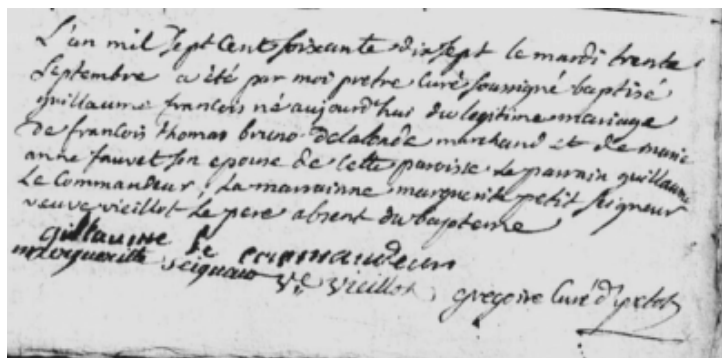 L'an mil sept cent soixante dix sept le mardi trente
Septembre a été par moi pretre Curé soussigné baptisé
guillaume francois né aujourd'hui du legitime mariage
de francois thomas bruno delalande marchand et de marie
anne fauvel son epouse de cette paroisse Le parrain guillaume
Le Commandeur, La marrainne marguerite petit seigneur
veuve vieillot Le pere absent du bapteme
gillaume le commandeur
marguerite seigneur Ve vieillot, gregoire Curé d'yvetot